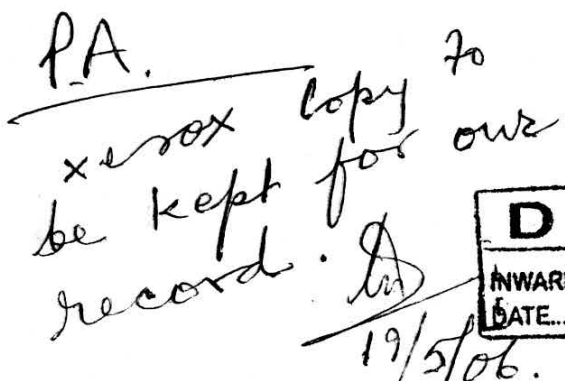 P.A.
xerox copy to
be kept for our
record.
19/5/06.
D
INWAR
DATE...